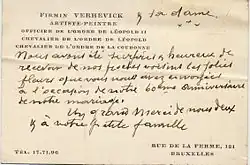 FIRMIN VERHEVICK & sa dame.
ARTISTE-PEINTRE
OFFICIER DE L'ORDRE DE LÉOPOLD II
CHEVALIER DE L'ORDRE DE LÉOPOLD
CHEVALIER DE L'ORDRE DE LA COURONNE
Nous avons été heureux de
recevoir de nos petits les jolies
fleurs que vous nous avez envoyées
à l'occasion de notre 60me anniversaire
de notre mariage.
Un grand Merci de nous deux
à notre petite famille
TÉL. 17.71.96
RUE DE LA FERME, 121
BRUXELLES